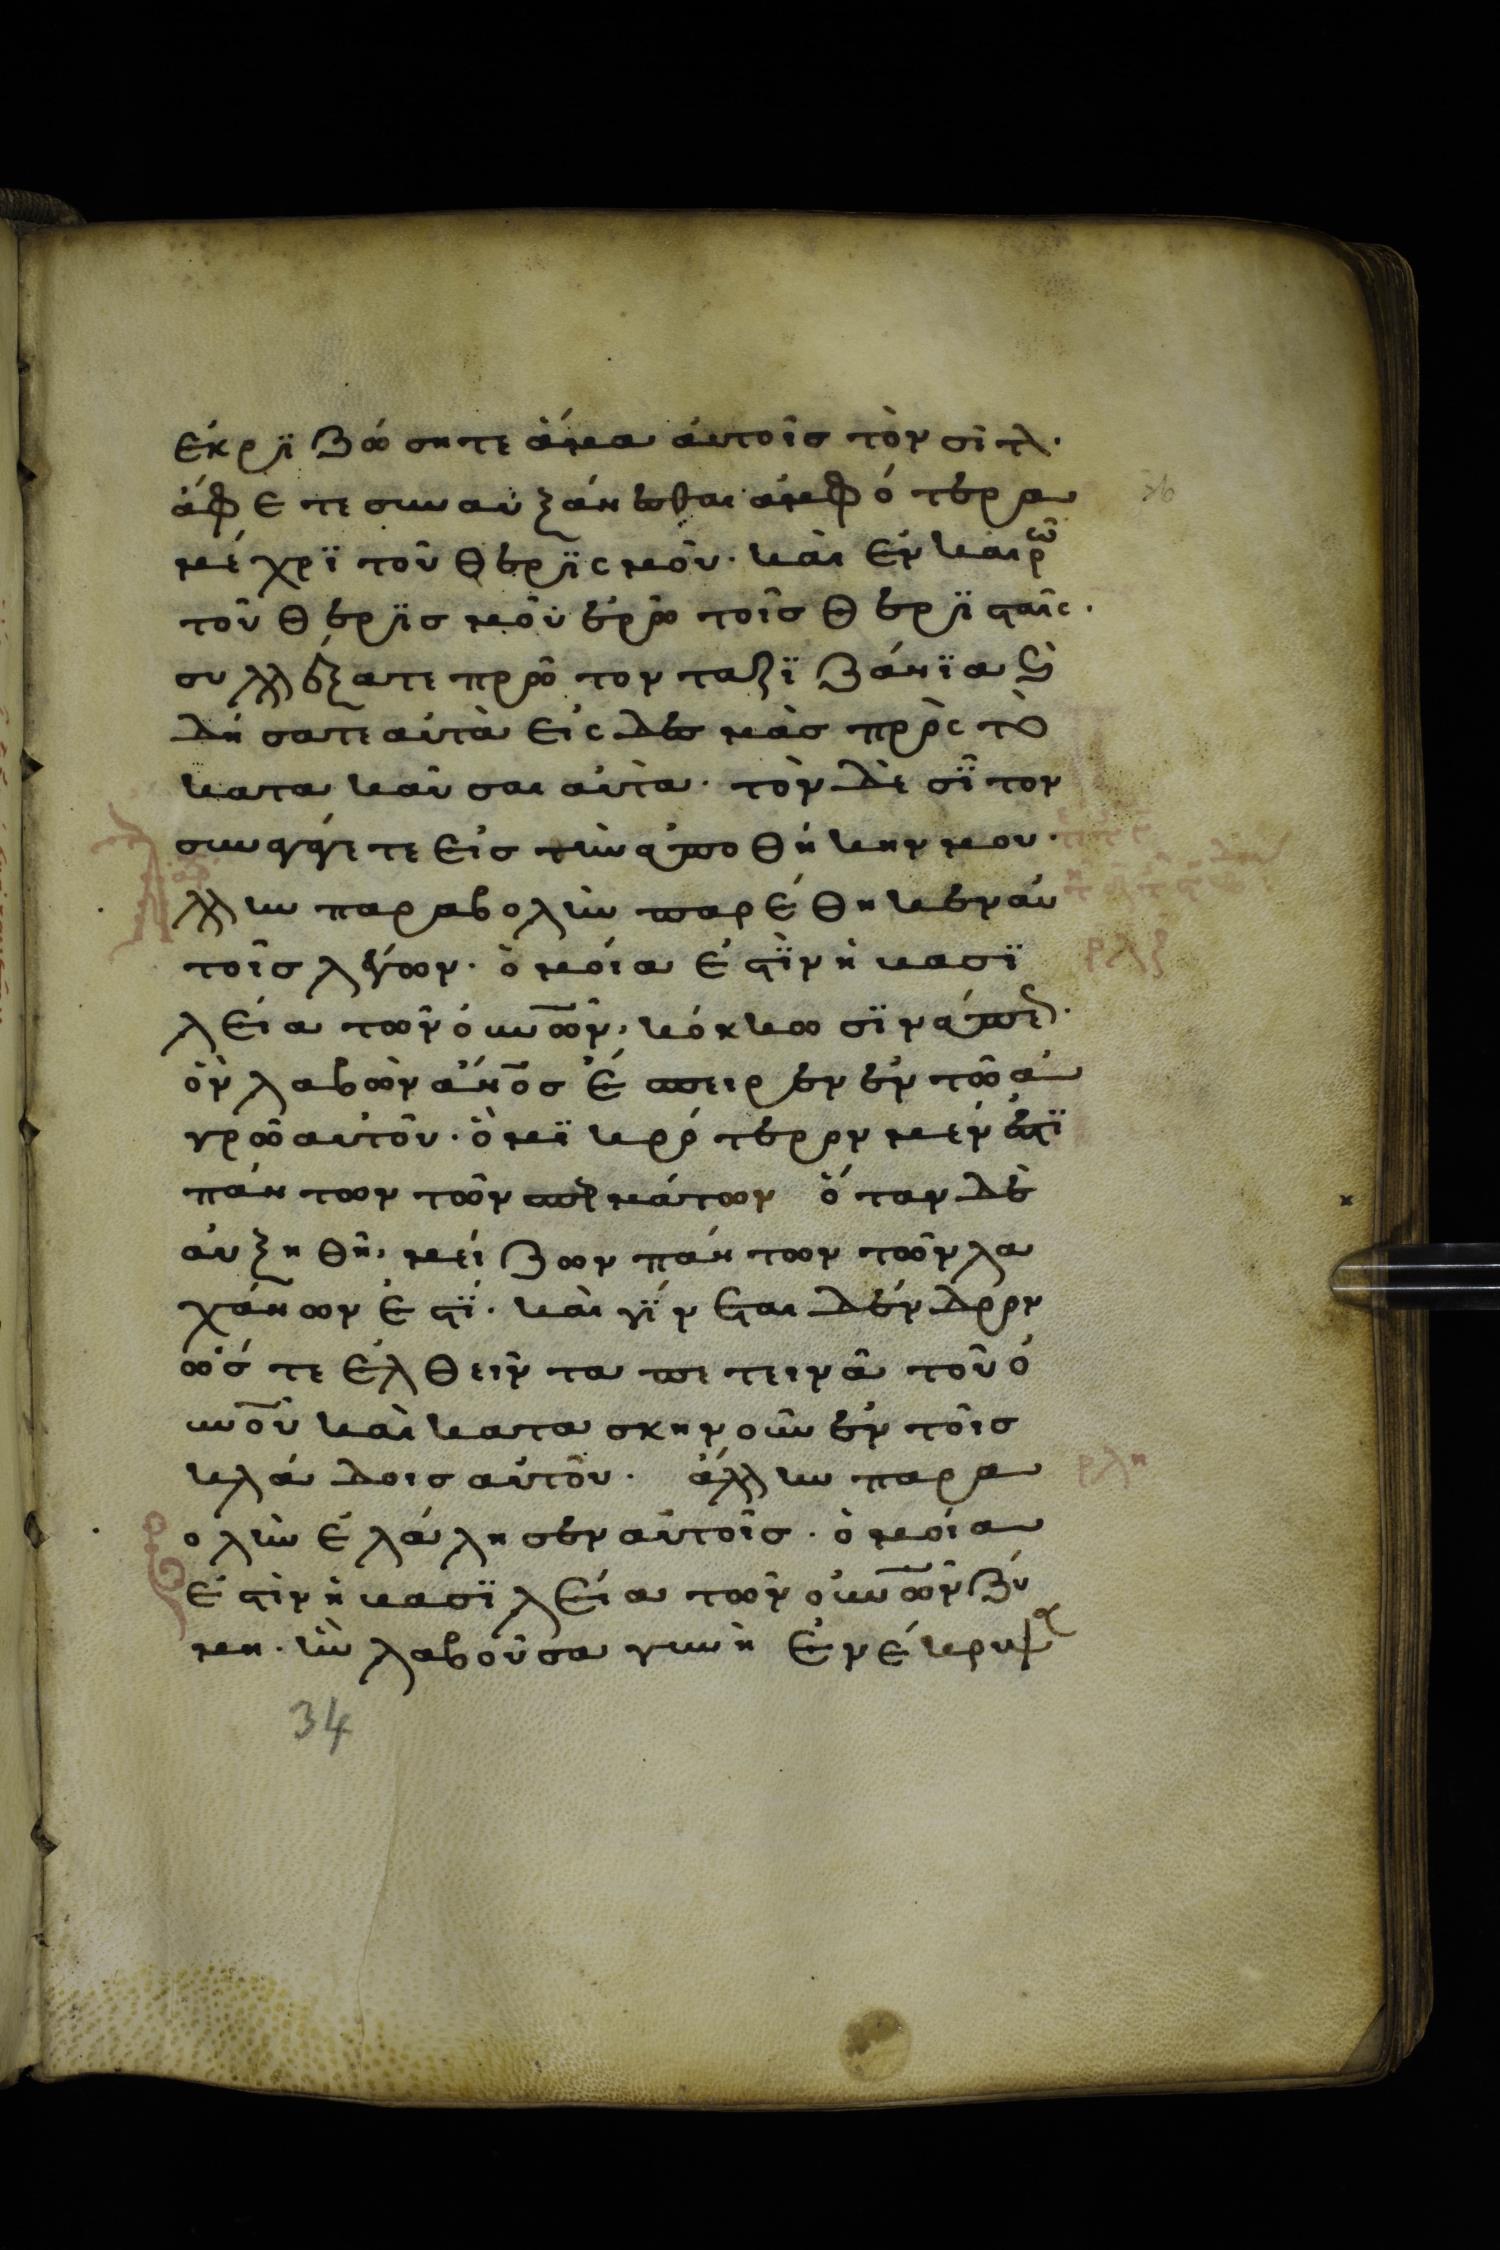 ἐκρϊζώσητε ἅμα ἀυτοῖσ τὸν σῖτ̣·
ἄφετε συναυξάνεσθαι ἀμφότερα
μέχρϊ τοῦ θερϊσμοῦ· καὶ ἐν καιρῶ
τοῦ θερϊσμοῦ ἐρῶ τοῖσ θερϊσταῖς·
συλλέξατε πρῶτον τα ζϊζάνϊα ϗ
δήσατε αὐτὰ εἰς δεσμὰσ πρὸς τὸ
κατακαῦσαι αὐτὰ· τὸν δὲ σῖτον
συναγάγετε εἰσ τὴν ἀποθήκην μου·
Ἄλλην παραβολὴν παρέθηκεν αὐ
τοῖσ λέγων· ὁμοία ἐστϊν ἡ βασϊ
λεία τῶν οὐνῶν, κόκκω σϊνάπε·
ὃν λαβὼν ἄνοσ ἔσπειρεν ἐν τῶ ἀ
γρῶ αυτοῦ· ὃ μϊκρότερον μέν ἐστϊ
πάντων τῶν σπερμάτων ὅταν δὲ
αὐξηθῆ, μείζων πάντων τῶν λα
χάνων ἐστϊ· καὶ γίνεται δένδρον
ὥστε ἐλθεῖν τα πετεινὰ τοῦ ὀ
υνοῦ καὶ κατασκηνοῦν ἐν τοῖσ
κλάδοισ αὐτοῦ· ἄλλην παρα
ολὴν ἐλάλησεν αὐτοῖσ· ὁμοία
ἐστὶν ἡ βασϊλεία τῶν οὐνῶν ζύ
μη· ἣν λαβοῦσα γυνὴ ἐνέκρυψα
ρλζ
ρλη
34